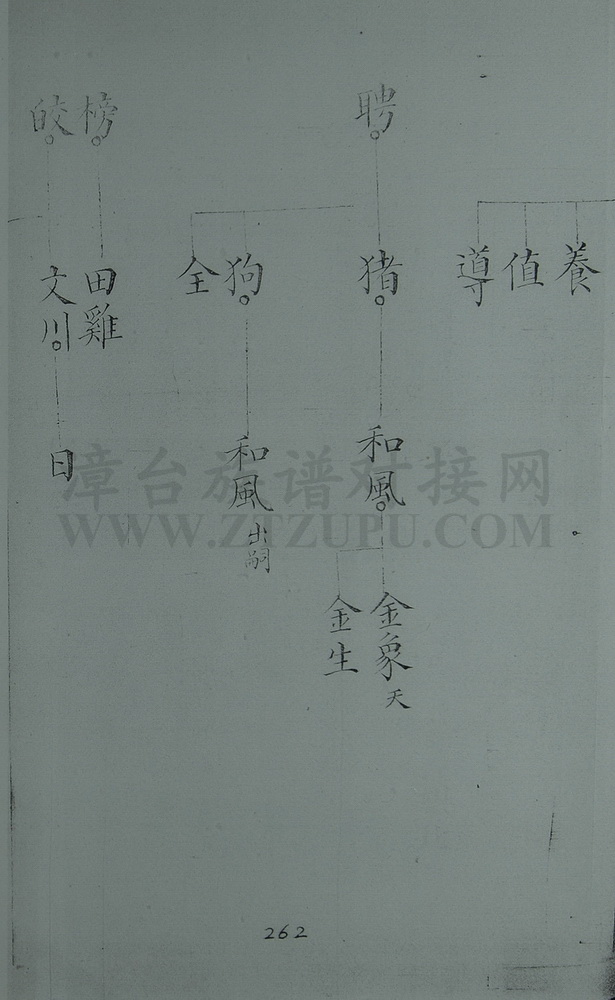 聘
榜
皎
養
值
導
猪
狗
全
田雞
文川
和風
和風 出嗣
日
金象 天
金生
漳台族谱对接网
WWW.ZTZUPU.COM
262